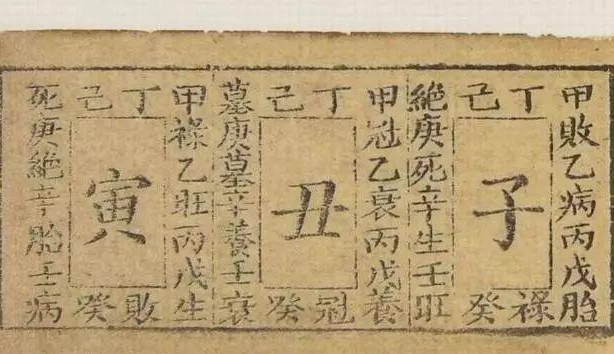 子
甲敗乙病丙戊胎
丁己
絕庚死辛生壬旺
癸祿
丑
甲冠乙衰丙戊養
丁己
墓庚墓辛養壬衰
癸冠
寅
甲祿乙旺丙戊生
丁己
死庚絕辛胎壬病
癸敗